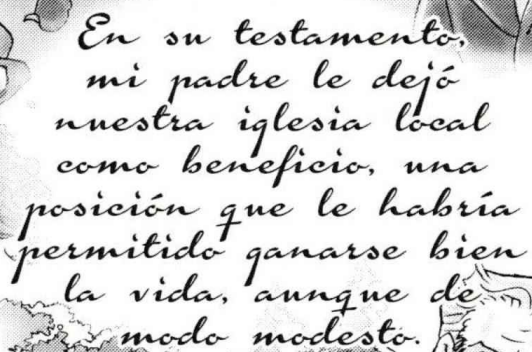 En su testamento,
mi padre le dejó
nuestra iglesia local
como beneficio, una
posición que le habría
permitido ganarse bien
la vida, aunque de
modo modesto.